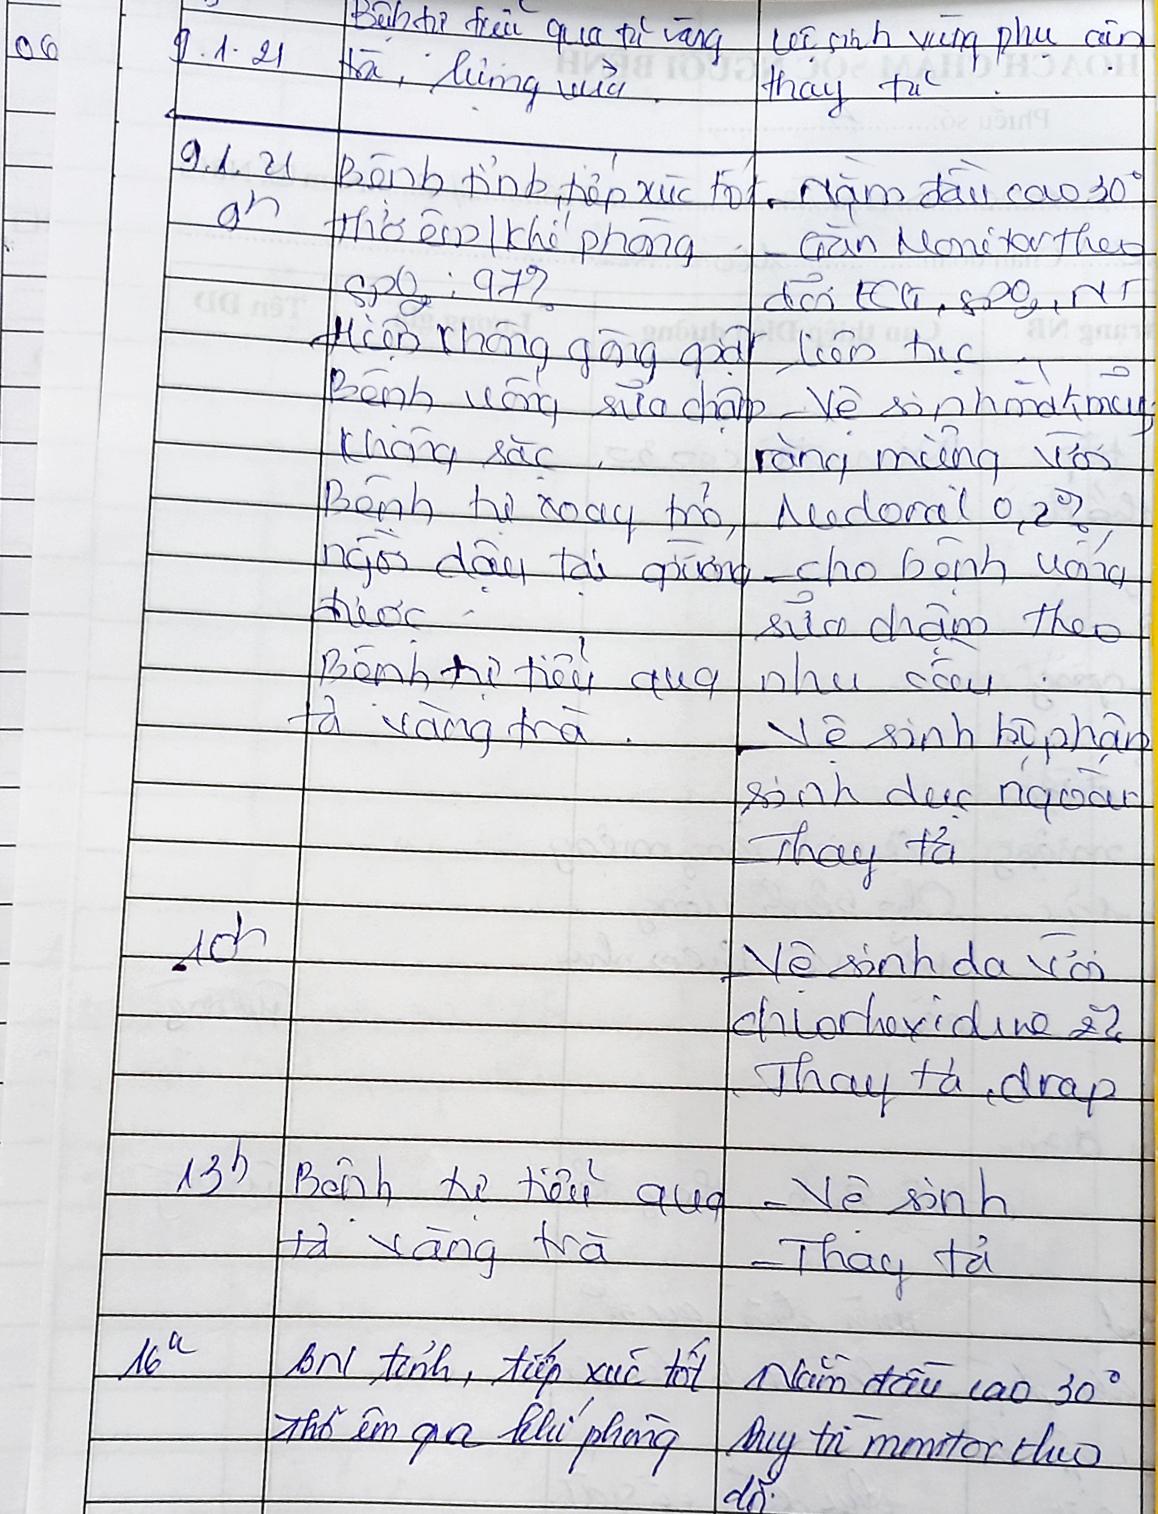 06
9.1.21
Bệnh tự tiểu qua tả vàng
trà, lượng vừa.
vệ sinh vùng phụ cận
thay tả.
9.1.21
9h
Bệnh tỉnh, tiếp xúc tốt.
thở êm/khí phòng
SpO2: 97%
Hiện không gồng giật
Bệnh uống sữa chậm
không sặc.
Bệnh tự xoay trở,
ngồi dậy tại giường
được.
Bệnh tự tiểu qua
tả vàng trà.
- Nằm đầu cao 30°
- Gắn Monitor theo
dõi ECG, SPO2, NT
liên tục.
- Vệ sinh mắt, mũi,
răng miệng với
Medoral 0,2%
- cho bệnh uống
sữa chậm theo
nhu cầu.
- Vệ sinh bộ phận
sinh dục ngoài
- Thay tả
10h
- Vệ sinh da với
chlorhexidine 2%
Thay tả, drap
13h
Bệnh tự tiểu qua
tả vàng trà
- Vệ sinh
- Thay tả
16h
BN tỉnh, tiếp xúc tốt
Thở êm qua khí phòng
Nằm đầu cao 30°
Duy trì monitor theo
dõi.